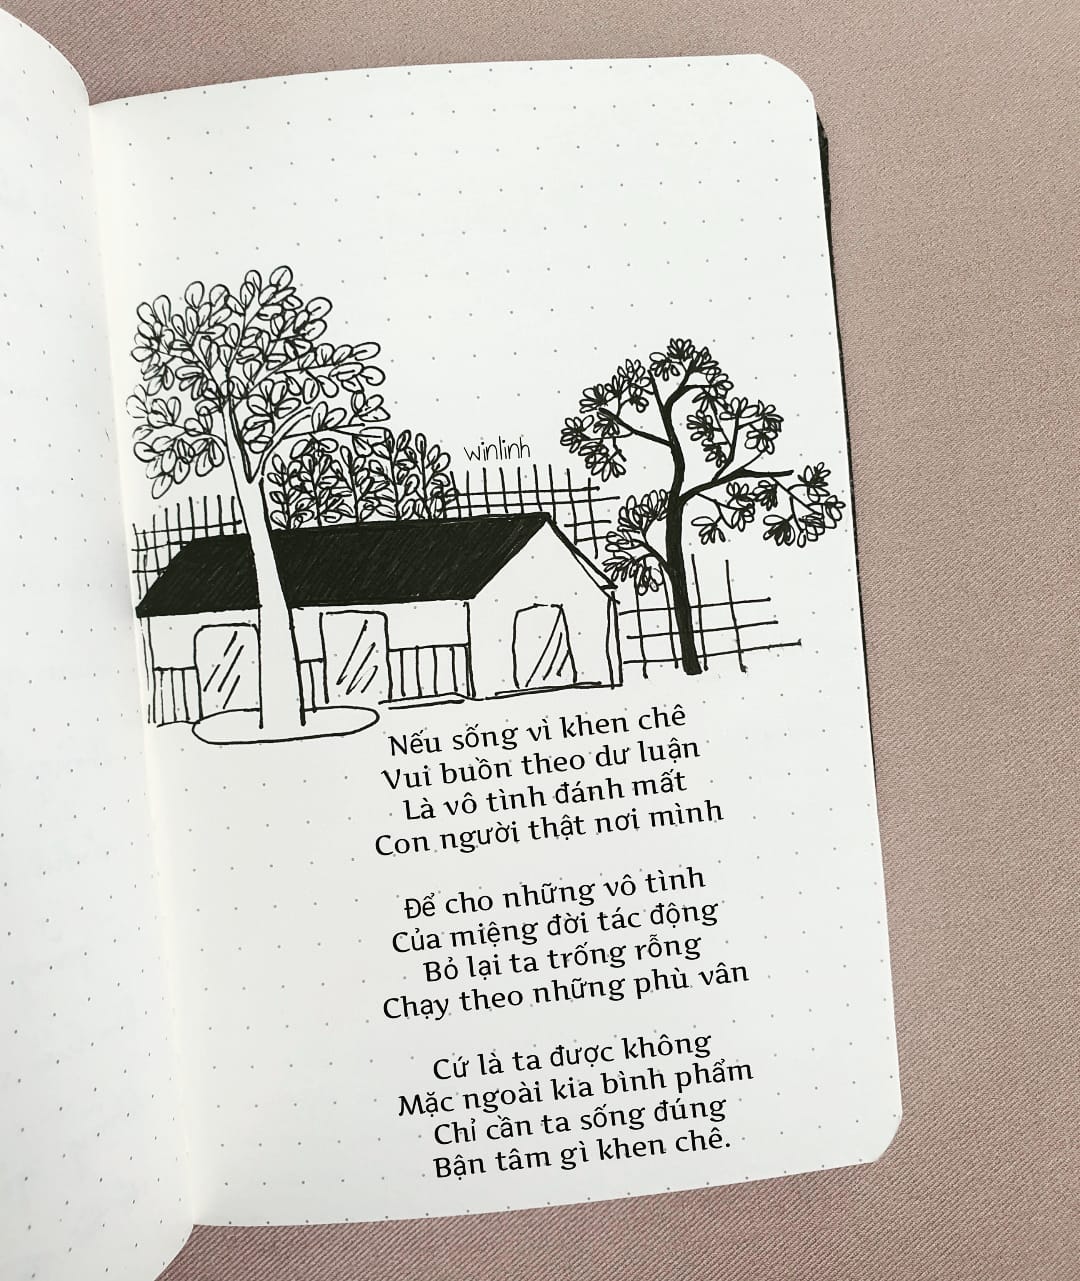 winlinh
Nếu sống vì khen chê
Vui buồn theo dư luận
Là vô tình đánh mất
Con người thật nơi mình
Để cho những vô tình
Của miệng đời tác động
Bỏ lại ta trống rỗng
Chạy theo những phù vân
Cứ là ta được không
Mặc ngoài kia bình phẩm
Chỉ cần ta sống đúng
Bận tâm gì khen chê.